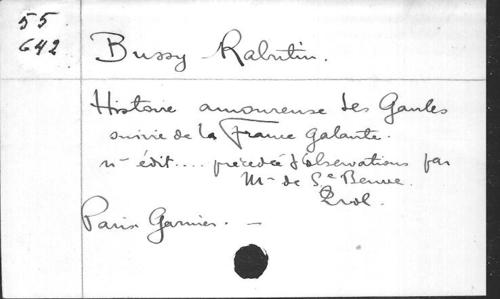 55
642
Bussy Rabutin.
Histoire amoureuse des Gaules
suivie de la France galante.
n- édit.... précédée d'observations par
M- de Ste Beuve.
2 vol.
Paris Garnier. -